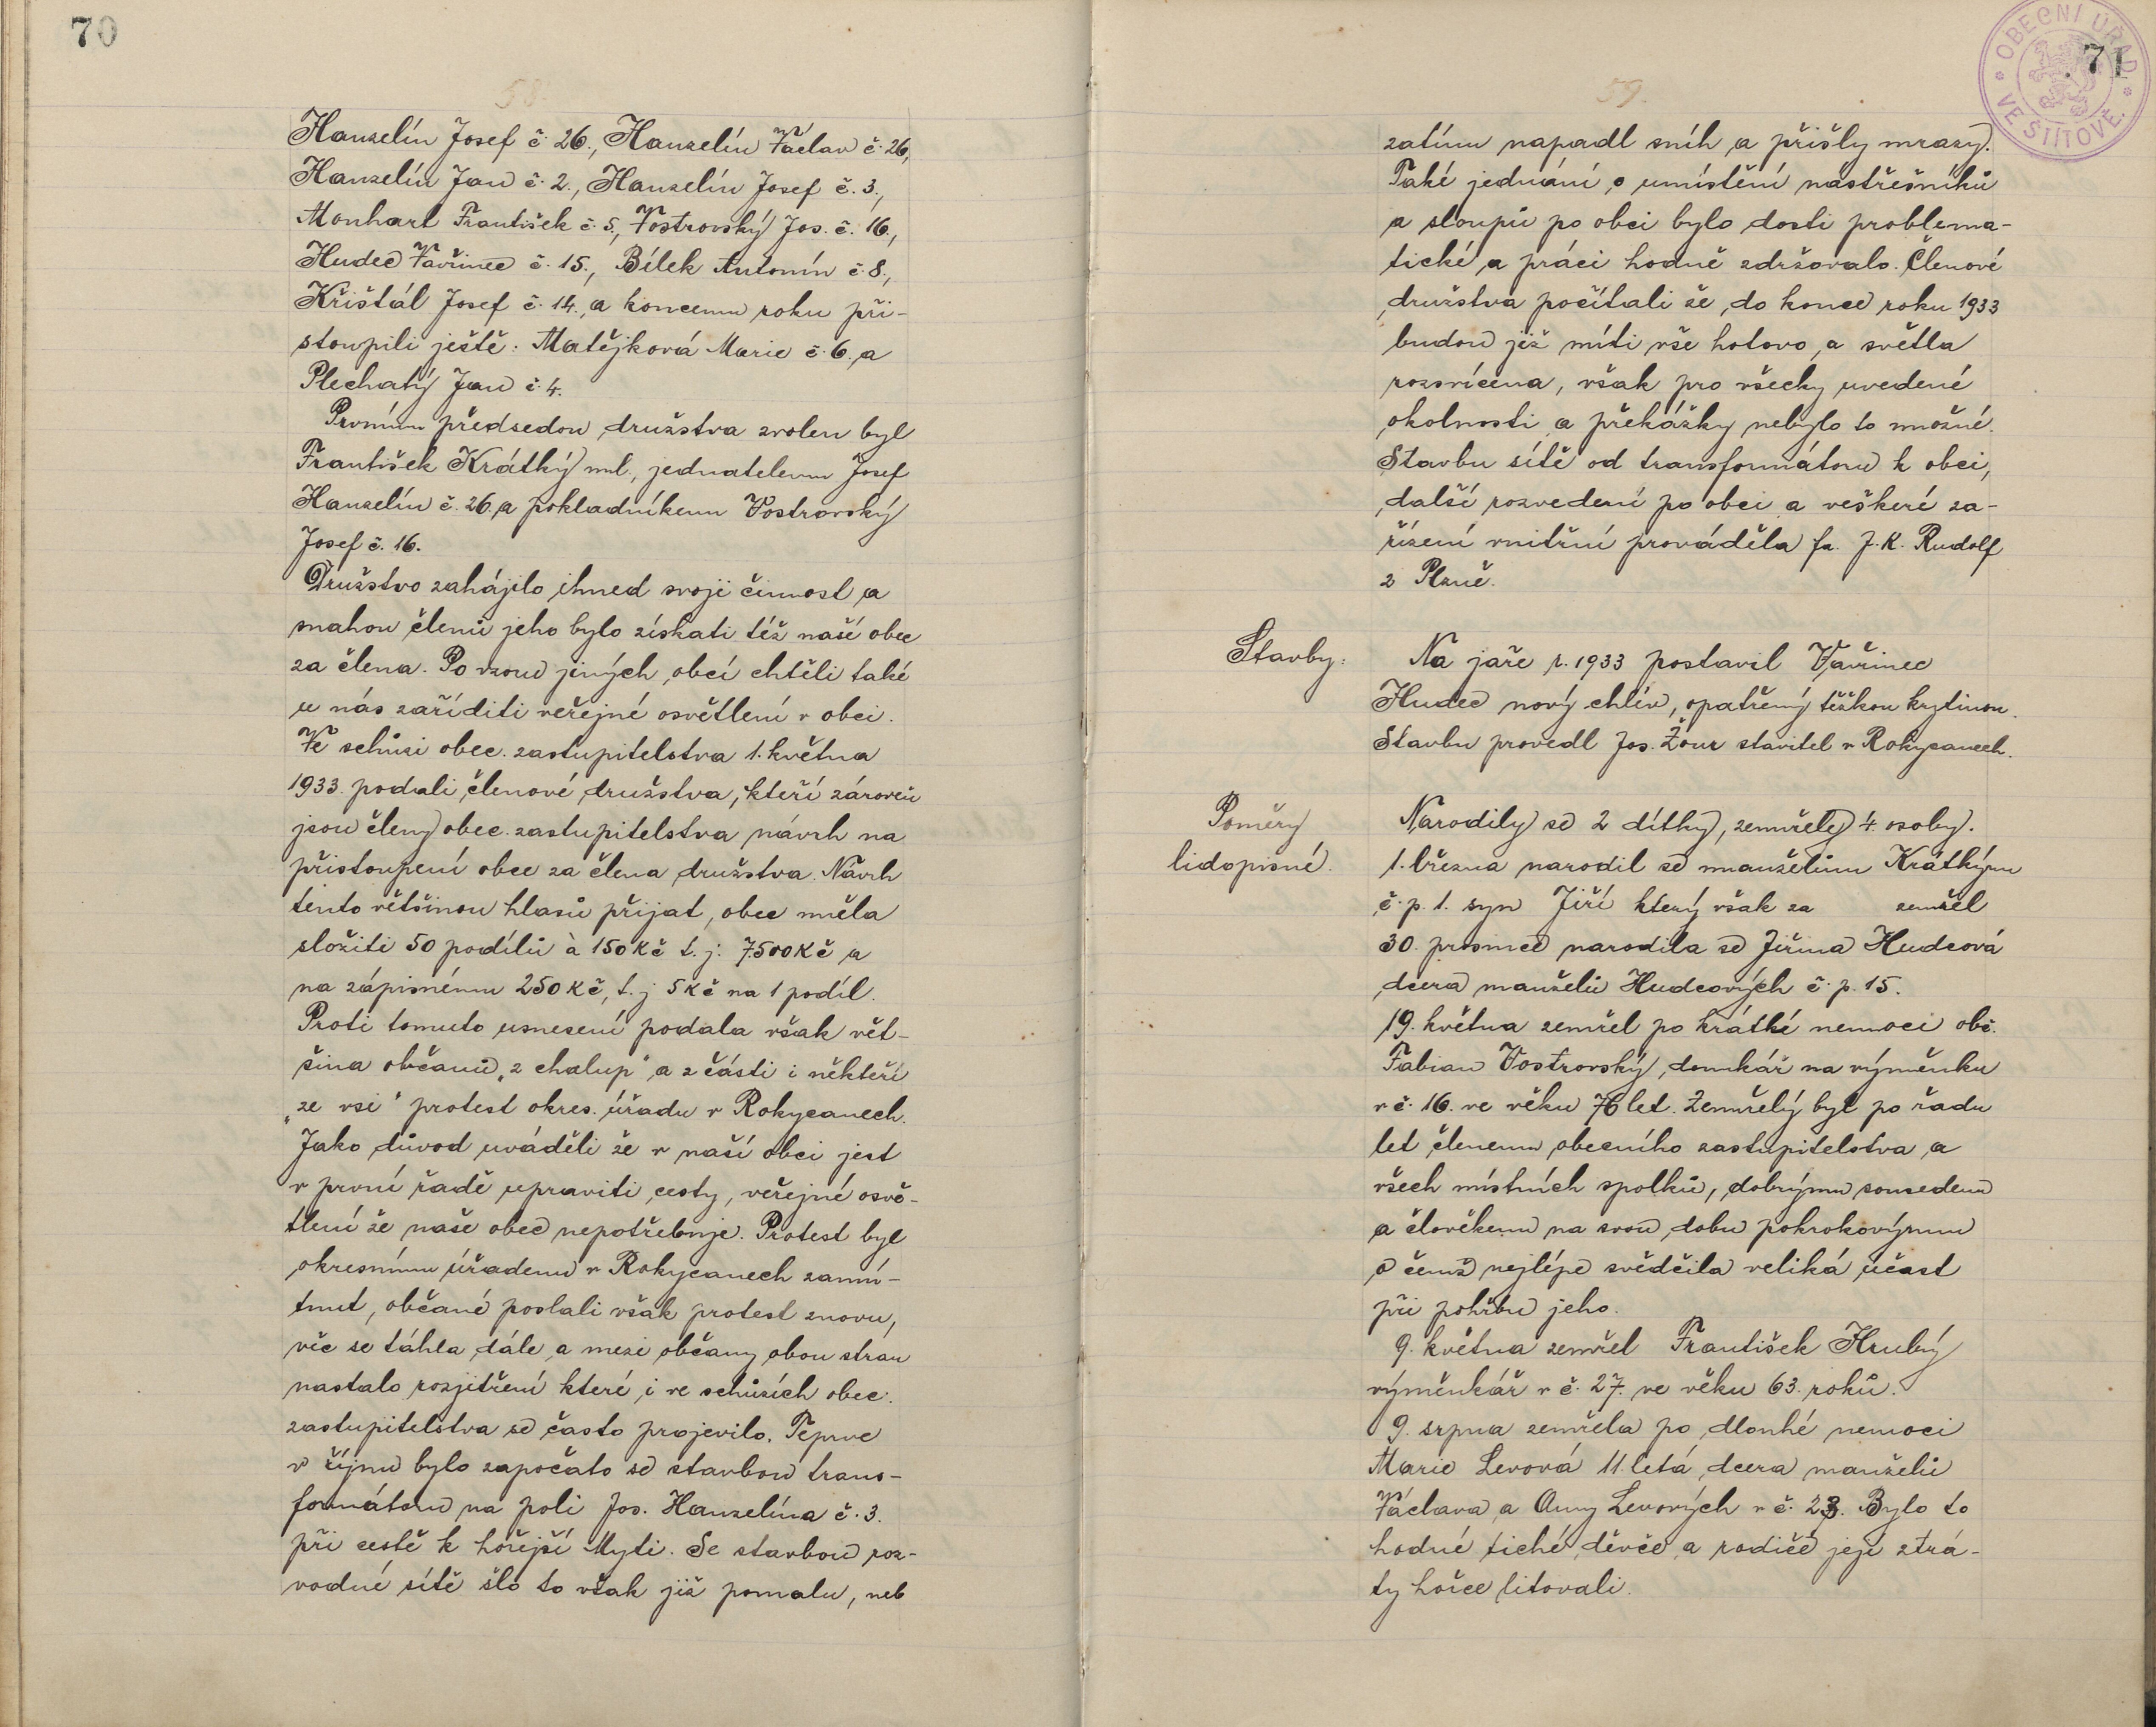 70
58.
Hanzelín Josef č. 26., Hanzelín Václav č. 26,
Hanzelín Jan č. 2., Hanzelín Josef č. 3.,
Monhart František č. 5, Vostrovský Jos. č. 16.,
Hudec Vavřinec č. 15., Bílek Antonín č. 8.,
Křištál Josef č. 14., a koncem roku při-
stoupili ještě: Matějková Marie č. 6., a
Plechatý Jan č. 4.
Prvním předsedou družstva zvolen byl
František Krátký ml, jednatelem Josef
Hanzelín č. 26, a pokladníkem Vostrovský
Josef č. 16.
Družstvo zahájilo ihned svoji činnost a
snahou členů jeho bylo získati též naší obec
za člena. Po vzoru jiných obcí chtěli také
u nás zaříditi veřejné osvětlení v obci.
Ve schůzi obec. zastupitelstva 1. května
1933. podali členové družstva, kteří zároveň
jsou členy obec. zastupitelstva návrh na
přistoupení obce za člena družstva. Návrh
tento většinou hlasů přijat, obec měla
složiti 50 podílů à 150 Kč t. j. 7.500 Kč a
na zápisnému 250 Kč, t. j 5 Kč na 1 podíl.
Proti tomuto usnesení podala však vět-
šina občanů „z chalup" a z části i někteří
„ze vsi" protest okres. úřadu v Rokycanech.
Jako důvod uváděli že v naší obci jest
v první řadě upraviti cesty, veřejné osvě-
tlení že naše obec nepotřebuje. Protest byl
okresním úřadem v Rokycanech zamí-
tnut, občané poslali však protest znovu,
věc se táhla dále a mezi občany obou stran
nastalo rozjitření které i ve schůzích obec.
zastupitelstva se často projevilo. Teprve
v říjnu bylo započato se stavbou trans-
formátoru na poli Jos. Hanzelína č. 3.
při cestě k hořejší Myti. Se stavbou roz-
vodné sítě šlo to však již pomalu, neb
OBECNÍ ÚŘAD VE ŠTÍTOVĚ.
71
59.
zatím napadl sníh a přišly mrazy.
Také jednání o umístění nástřešníků
a sloupů po obci bylo dosti problema-
tické a práci hodně zdržovalo. Členové
družstva počítali že do konce roku 1933
budou již míti vše hotovo a světla
rozsvícena, však pro všecky uvedené
okolnosti a překážky nebylo to možné.
Stavbu sítě od transformátoru k obci,
další rozvedení po obci a veškeré za-
řízení vnitřní prováděla fa. J. K. Rudolf
z Plzně.
Stavby: Na jaře r. 1933 postavil Vavřinec
Hudec nový chlév, opatřený těžkou krytinou.
Stavbu provedl Jos. Žour stavitel v Rokycanech.
Poměry Narodily se 2 dítky, zemřely 4 osoby.
lidopisné. 1. března narodil se manželům Krátkým
č. p. 1. syn Jiří který však za zemřel
30. prosince narodila se Jiřina Hudcová
dcera manželů Hudcových č. p. 15.
19. května zemřel po krátké nemoci obč.
Fabian Vostrovský, domkář na výměnku
v č. 16. ve věku 76 let. Zemřelý byl po řadu
let členem obecního zastupitelstva a
všech místních spolků, dobrým sousedem
a člověkem na svou dobu pokrokovým
o čemž nejlépe svědčila veliká účast
při pohřbu jeho.
9. května zemřel František Hrubý
výměnkář v č. 27. ve věku 63. roků.
9. srpna zemřela po dlouhé nemoci
Marie Levová 11. letá dcera manželů
Václava a Anny Levových v č. 23. Bylo to
hodné tiché děvče a rodiče její ztrá-
ty hořce litovali.